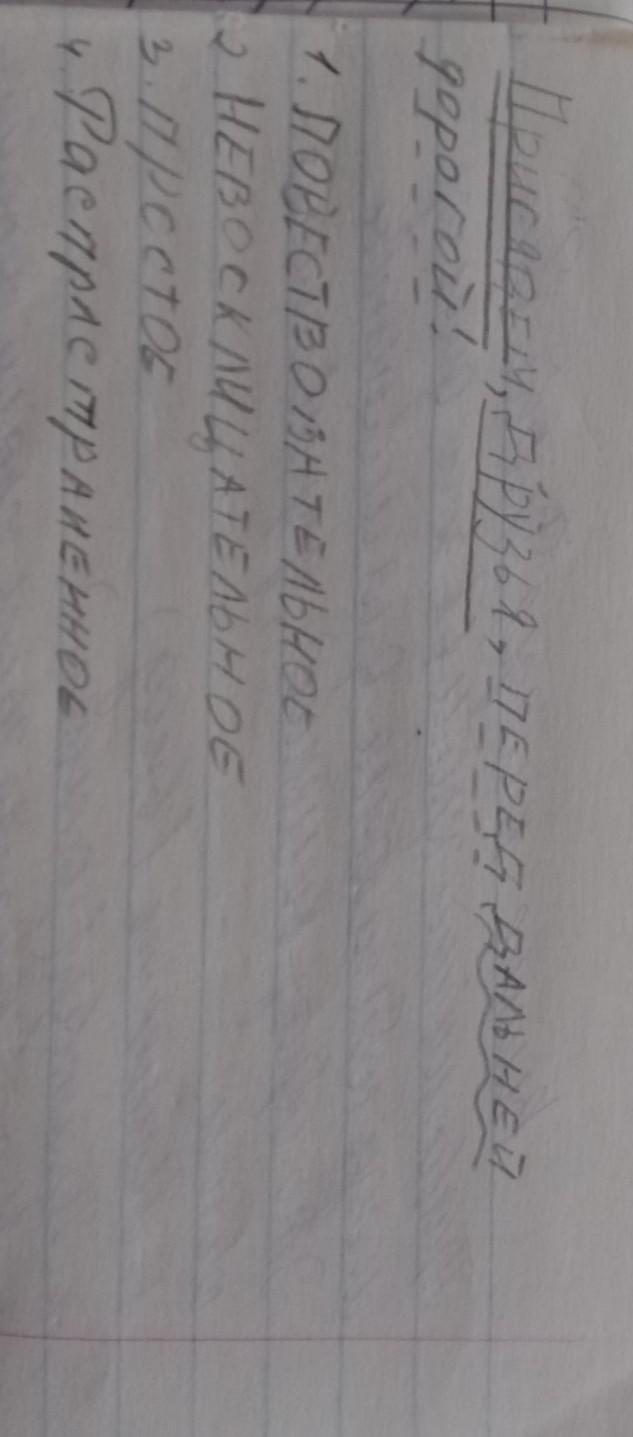 Присядем, друзья, ПЕРЕД ДАЛЬНЕЙ
дорогой!
1. ПОВЕСТВОВАТЕЛЬНОЕ
2 НЕВОСКЛИЦАТЕЛЬНОЕ
3. ПРОСТОЕ
4. Распространенное